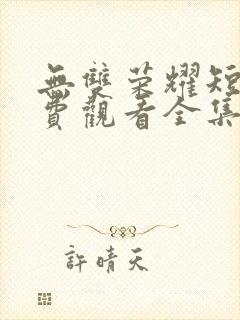 無雙荣耀短
費觀看全集
許晴天